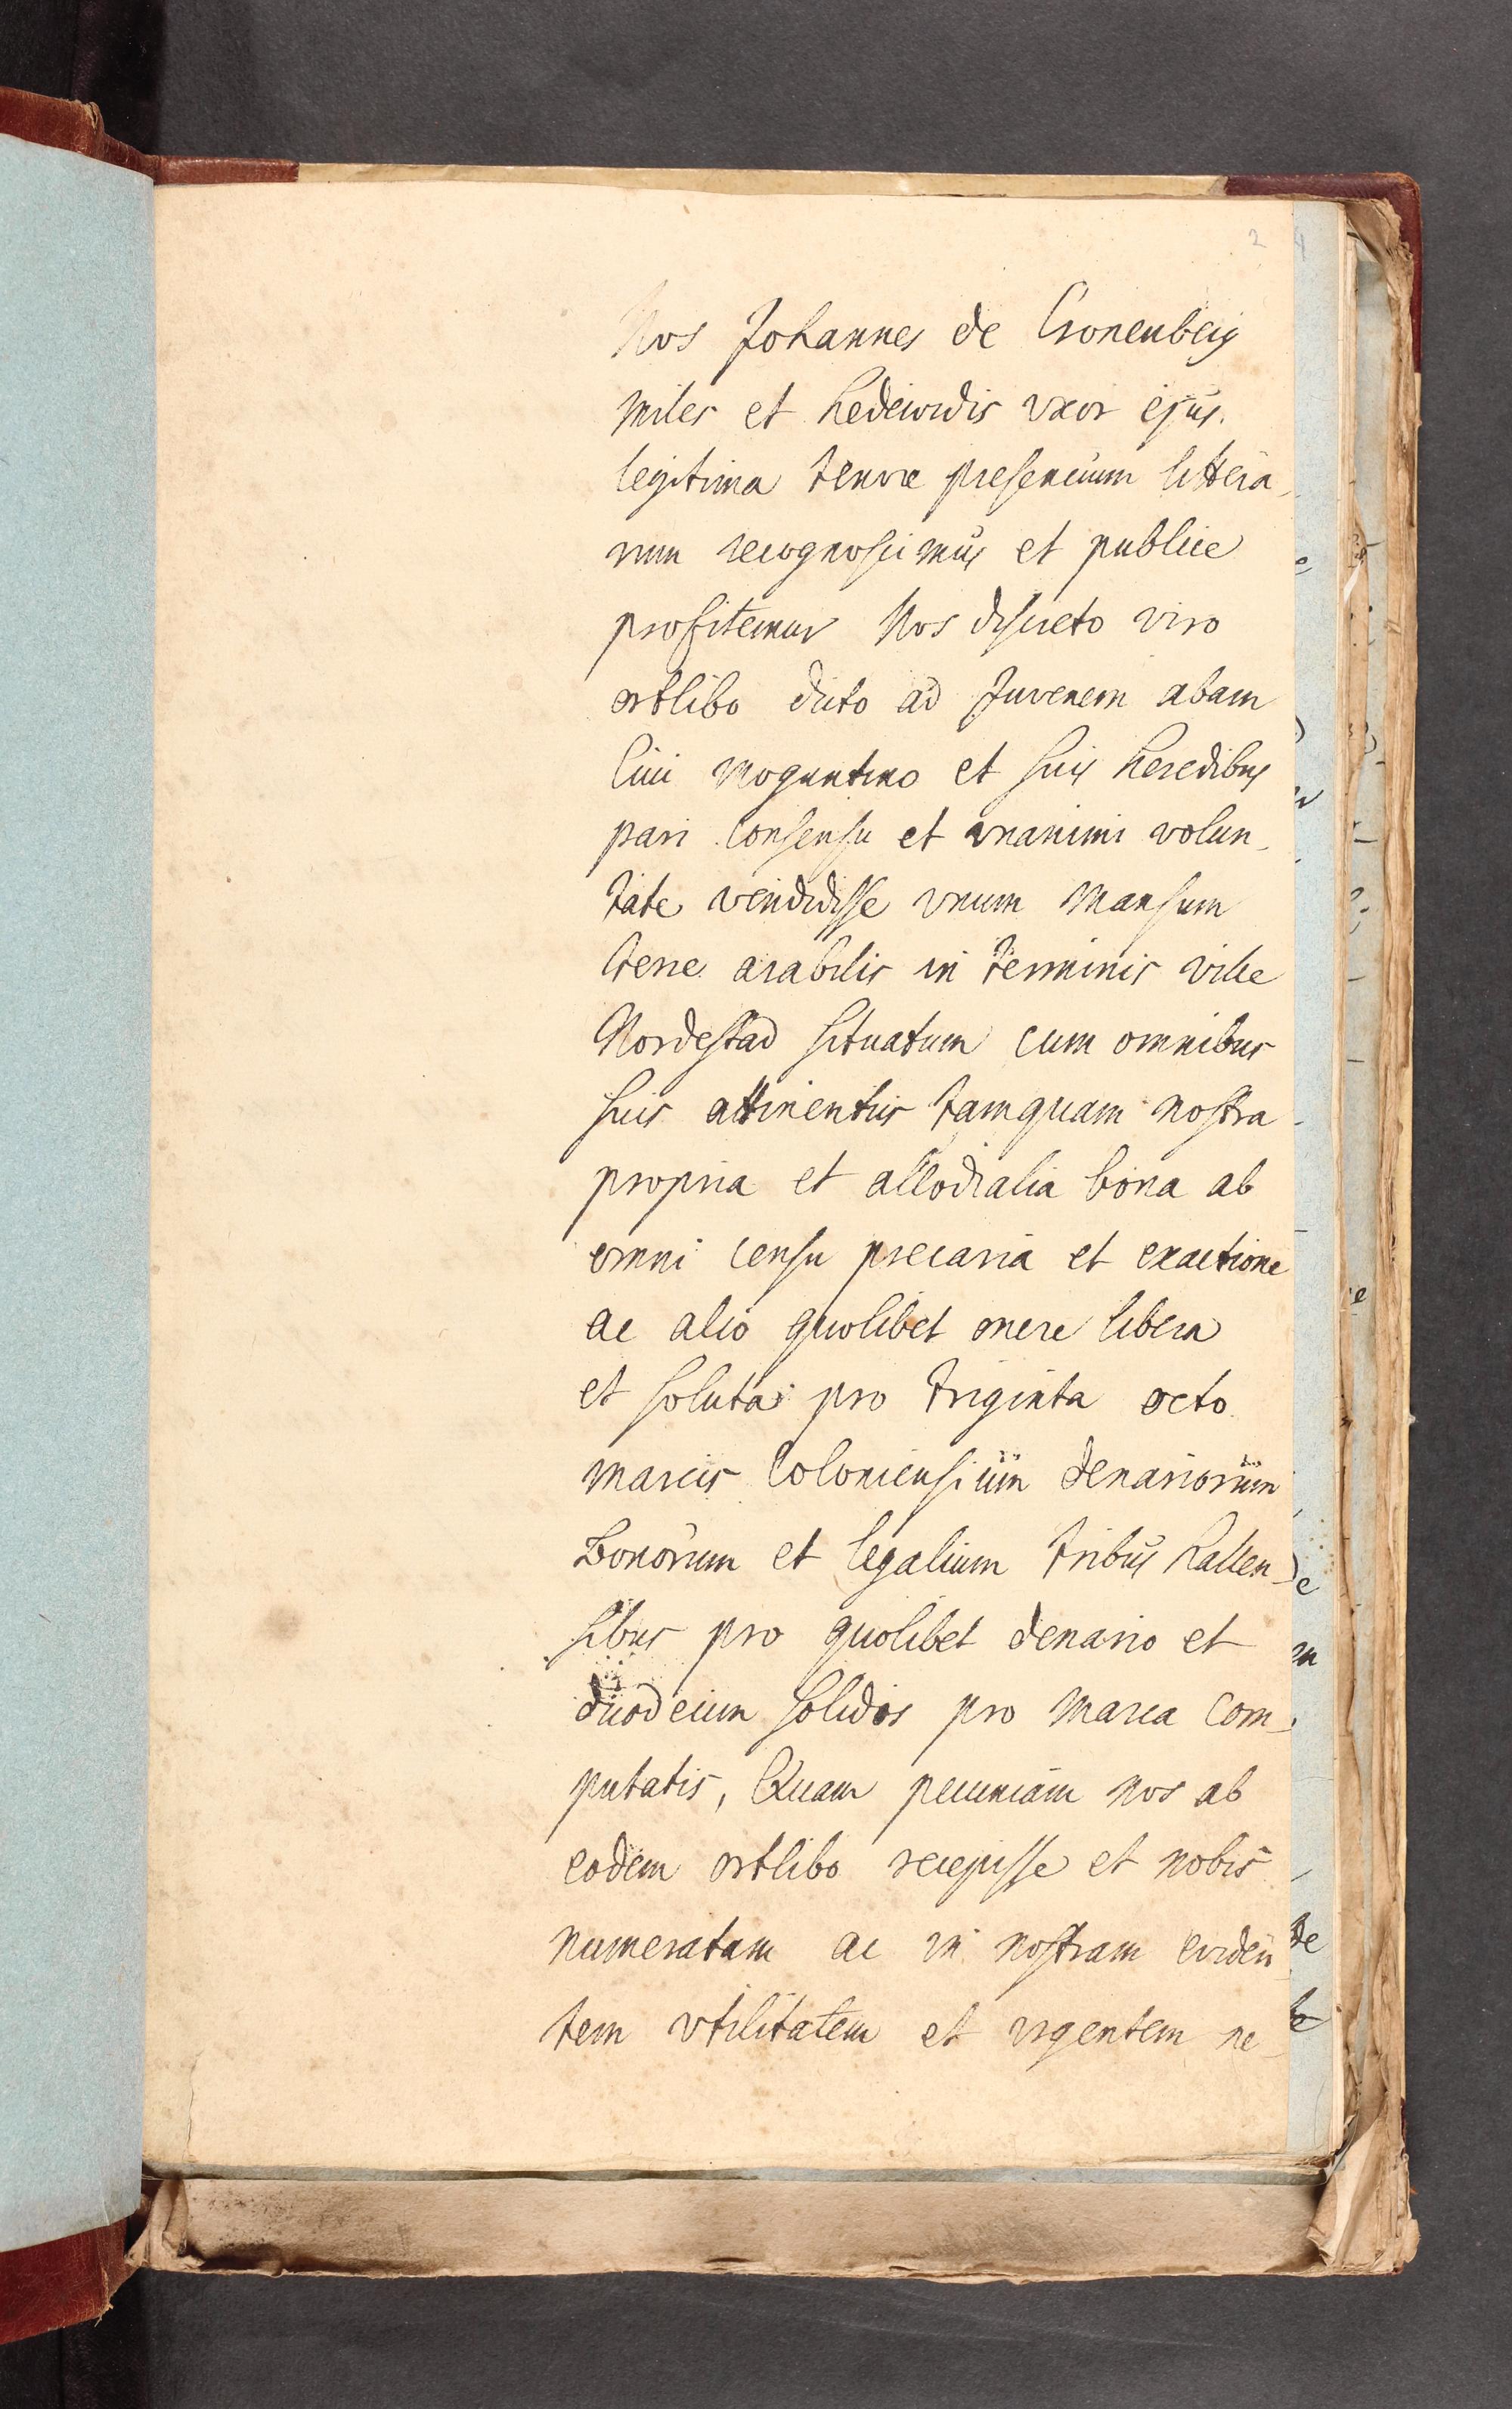 2 4
Nos Johannes de Cronenberg
miles et hedewdis uxor ejus.
legitima tenore presencium littera-
rum recognoscimus et publice
profitemur Nos discreto viro
ortlibo dicto ad Juvenem abam
Civi moguntino et suis heredibus
pari consensu et unanimi volun-
tate vendidisse vnum mansum
terre arabilis in terminis ville
Nordestad situatum cum omnibus
suis attinentiis tamquam nostra
propria et allodialia bona ab
omni censu precaria et exactione
ac alio quolibet onere libera
et soluta pro triginta octo
marcis Coloniensium denariorum
Bonorum et legalium tribus hallen-
sibus pro quolibet denario et
duodecim solidos pro marca com-
putatis, Quam pecuniam nos ab
eodem ortlibo recepisse et nobis
numeratam ac in nostram eviden
tem vtilitatem et vrgentem ne-